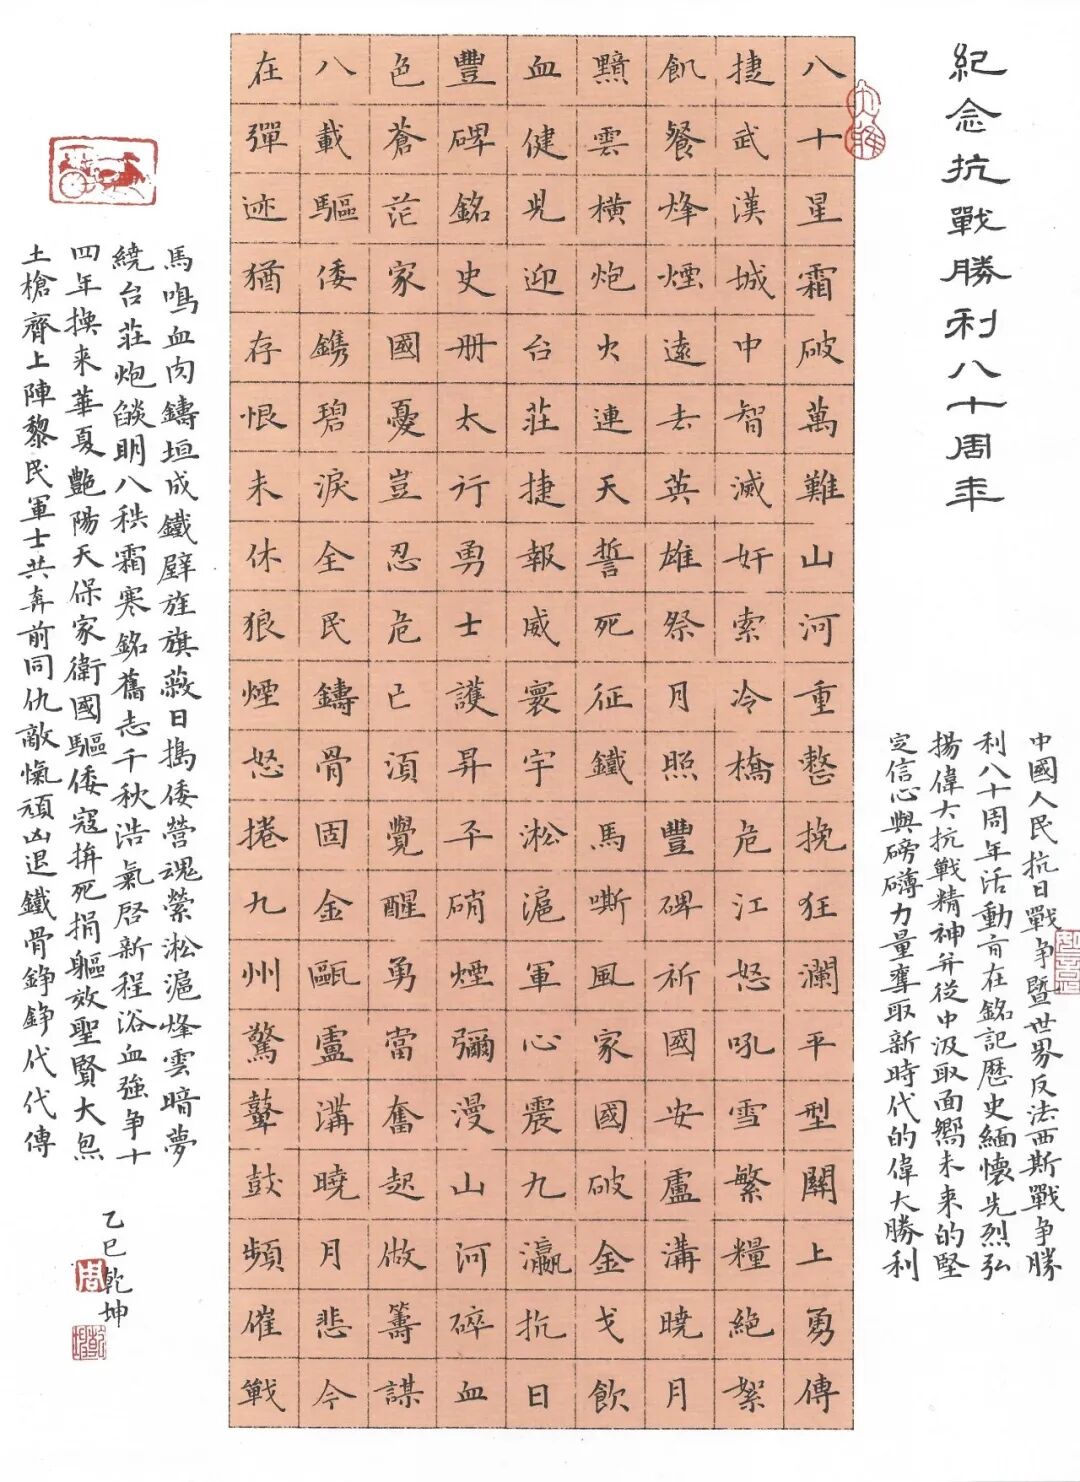 紀念抗戰勝利八十周年
中國人民抗日戰争暨世界反法西斯戰争勝
利八十周年活動旨在銘記歷史緬懷先烈弘
揚偉大抗戰精神并從中汲取面嚮未来的堅
定信心與磅礴力量奪取新時代的偉大勝利
八十星霜破萬難山河重整挽狂瀾平型關上勇傳
捷武漢城中智滅奸索冷橋危江怒吼雪繁糧絶絮
飢餐烽煙遠去英雄祭月照豐碑祈國安盧溝曉月
黯雲橫炮火連天誓死征鐵馬嘶風家國破金戈飲
血健皃迎台莊捷報威寰宇淞滬軍心震九瀛抗日
豐碑銘史册太行勇士護昇平硝煙彌漫山河碎血
色蒼茫家國憂豈忍危已須覺醒勇當奮起做籌謀
八載驅倭鎸碧淚全民鑄骨固金甌盧溝曉月悲今
在彈迹猶存恨未休狼煙怒捲九州驚鼙鼓頻催戰
馬鳴血肉鑄垣成鐵壁旌旗蔽日搗倭營魂縈淞滬烽雲暗夢
繞台莊炮燄明八秩霜寒銘舊志千秋浩氣啓新程浴血強争十
四年換来華夏艷陽天保家衛國驅倭寇拚死捐軀效聖賢大炰
土槍齊上陣黎民軍士共奔前同仇敵愾頑凶退鐵骨錚錚代代傳
乙巳乾坤
周
乾坤